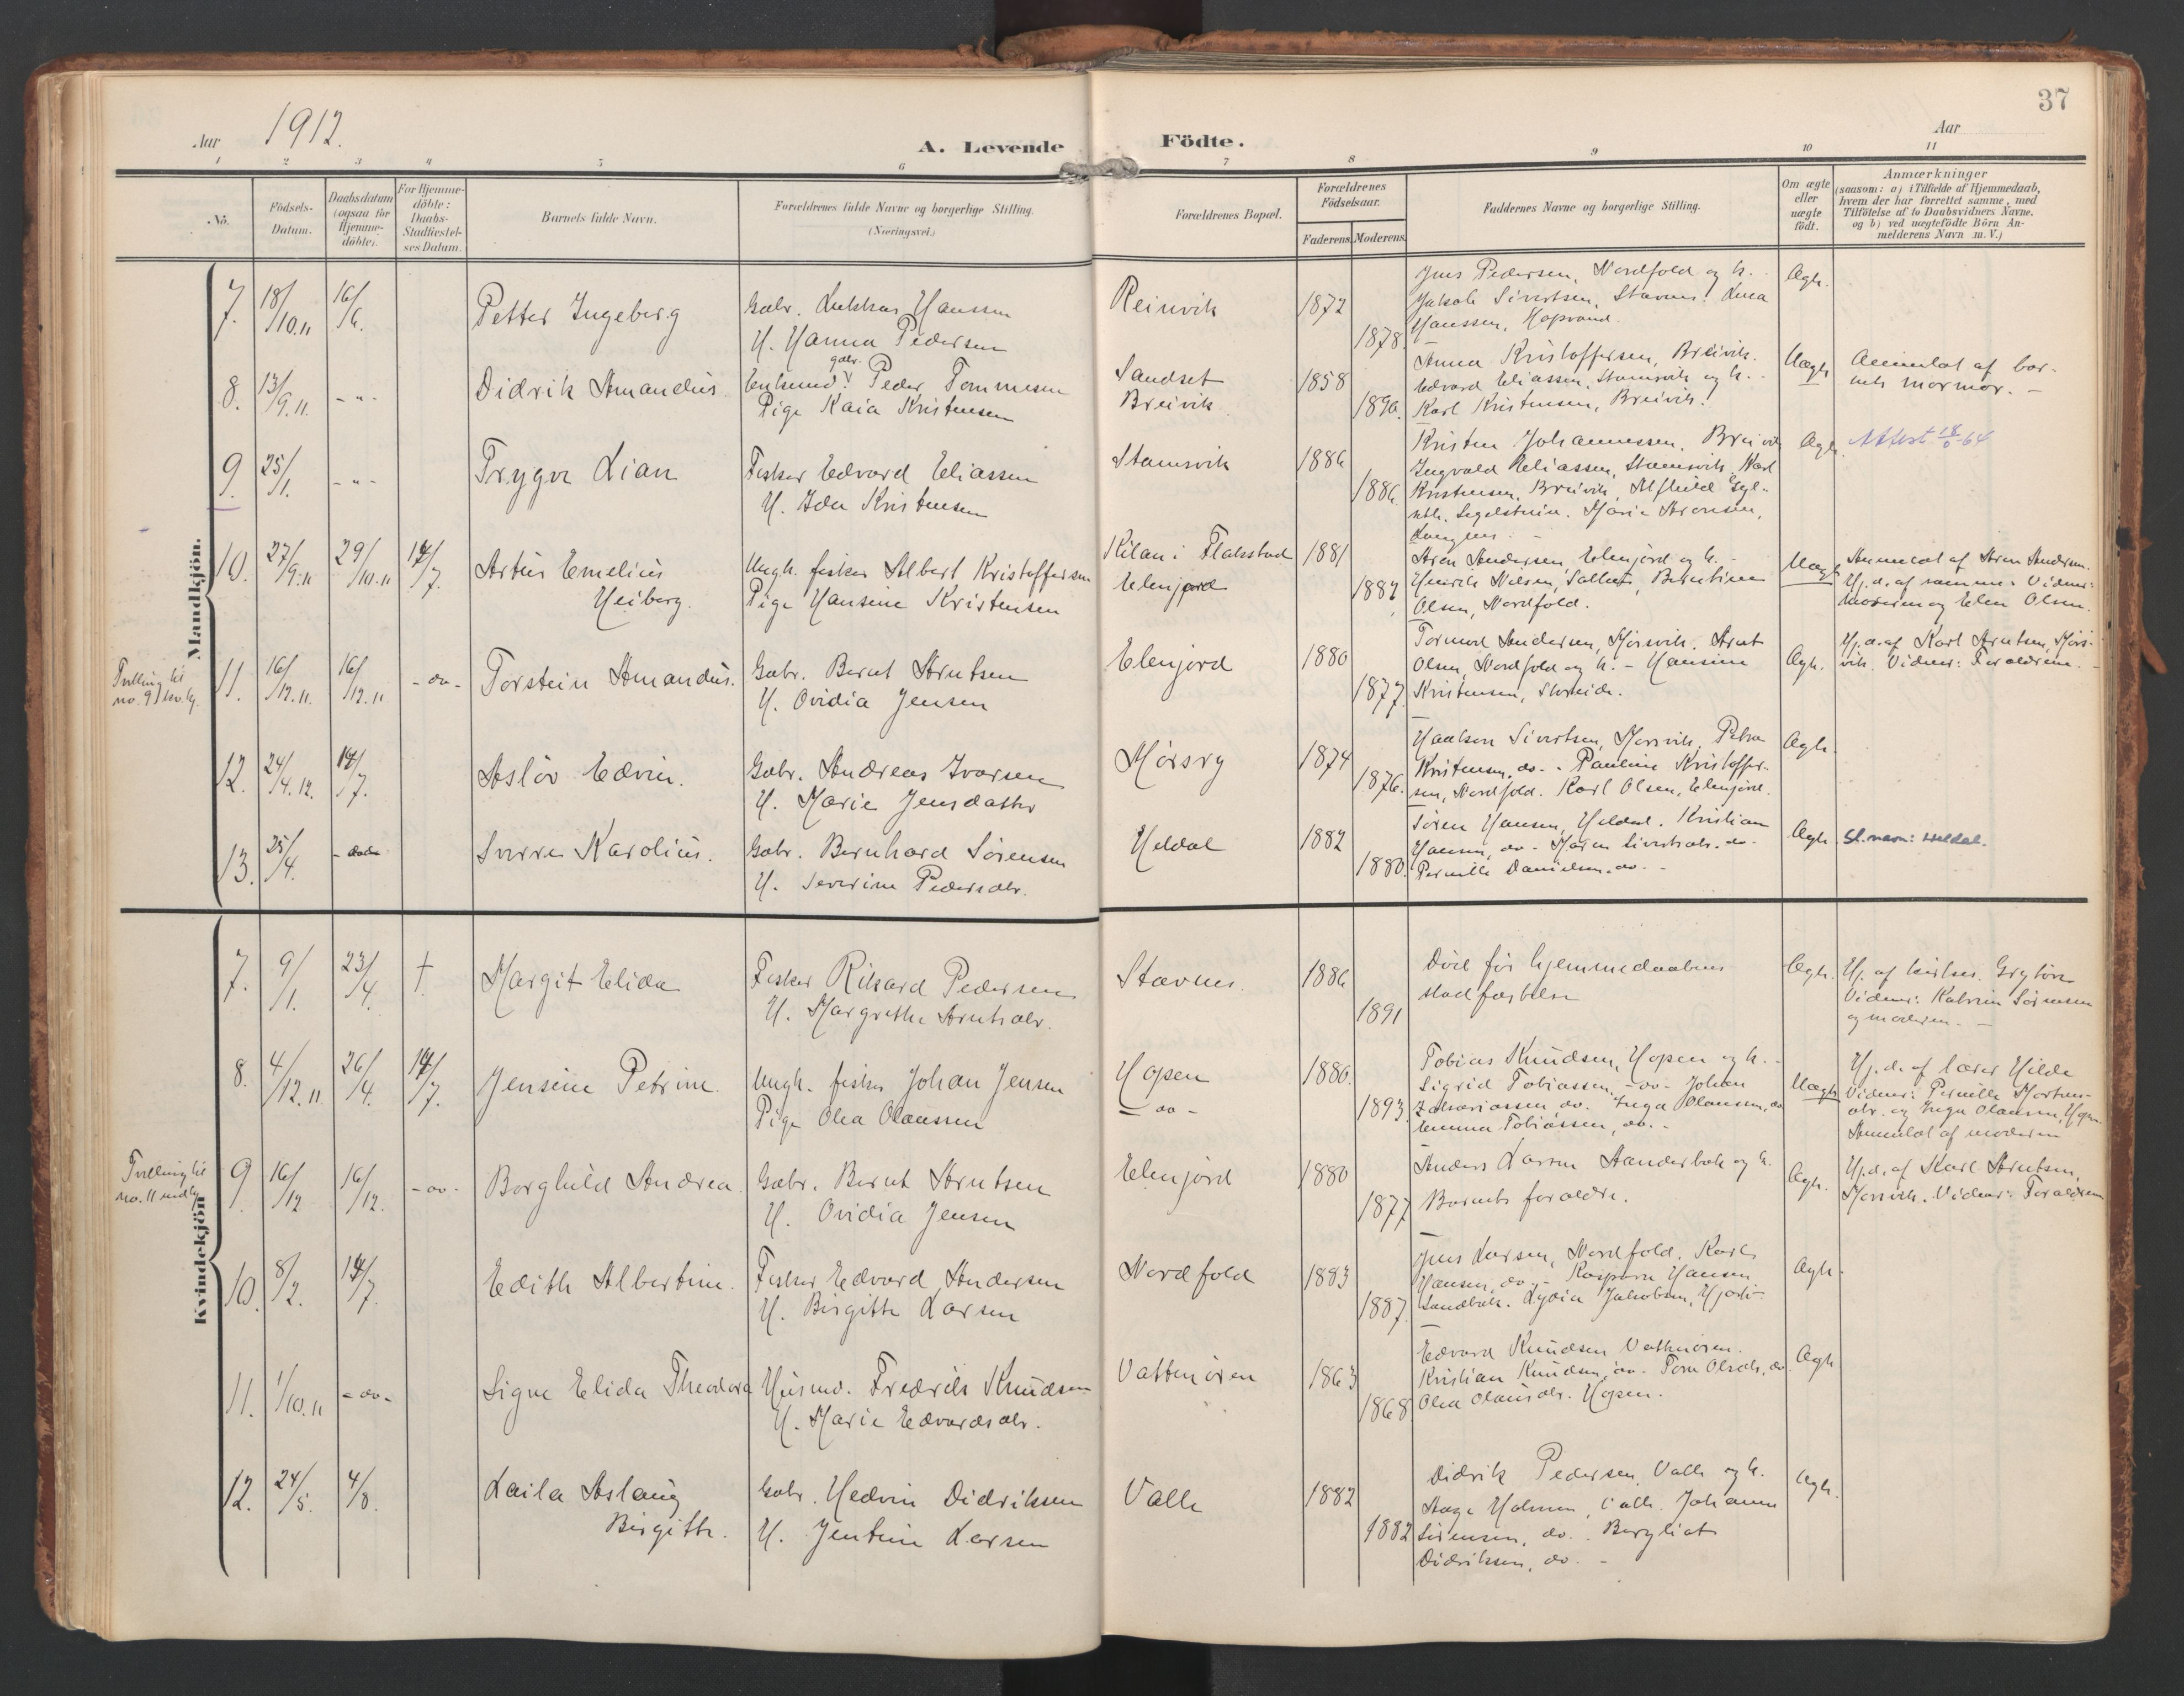 37
Aar 1912. A. Levende Födte. Aar
1 2 3 4 5 6 7 8 9 10 11
No.
Födsels-Datum.
Daabsdatum (ogsaa for Hjemme-döbte).
For Hjemme-döbte: Daabs-Stadfæstel-ses Datum.
Barnets fulde Navn.
Forældrenes fulde Navne og borgerlige Stilling.
(Næringsvei.)
Forældrenes Bopæl.
Forældrenes Födselsaar.
Faderens. Moderens.
Faddernes Navne og borgerlige Stilling.
Om ægte eller uægte födt.
Anmærkninger
(saasom: a) i Tilfælde af Hjemmedaab,
hvem der har forrettet samme, med
Tilföielse af to Daabsvidners Navne,
og b) ved uægtefödte Börn An-
melderens Navn m. V.)
Mandkjön.
7. 18/10.11 16/6. Petter Ingeberg
Gabr. Hanssen
H. Hanna Pedersen
Reinvik 1872 1878.
Jens Pedersen, Nordfold og h.
Jakob Sivertsen, Stavnes.
Hanssen, Hopvand.
Ægte.
8. 13/9.11. - " - Didrik Amandus
Enkemd. gabr. Peder Tommesen
Pige Kaia Kristensen
Sandset
Breivik
1858 1890.
Anna Kristoffersen, Breivik.
Edvard Eliassen, Stamsvik og h. -
Karl Kristensen, Breivik.
Uægte
Anmeldt af bar-
nets mormor. -
9. 25/1. - " - Trygve Lian
Fisker Edvard Eliassen
H. Ida Kristensen
Stamsvik 1886 1886.
Kristen Johannessen, Breivik
Ingvald Eliassen, Stamsvik. Karl
Kristensen, Breivik,
Marie Aronsen,
Ægte. Attest
10. 27/9.11 29/10.11 14/7. Artur Emelius
Heiberg.
Ungk. fisker Albert Kristoffersen
Pige Hansine Kristensen
Kilan i Flakstad
Elenjord
1881 1887
Aron Andersen, Elenjord og h. -
Henrik Nielsen, Berntine
Olsen, Nordfold.
Uægte
Anmeldt af Aron Andersen.
Hj. d. af samme. Vidner:
Moderen og Elen Olsen.
Tvilling til
no. 9 kvk.
11. 16/12.11. 16/12.11 - do - Torstein Amandus.
Gabr. Bernt Arntsen
H. Ovidia Jensen
Elenjord 1880 1877.
Tormod Andersen, Mørsvik. Arnt
Olsen, Nordfold og h. - Hansine
Kristensen,
Ægte.
Hj. d. af Karl Arntsen, Mørs-
vik. Vidner: Forældrene. -
12. 24/4.12. 14/7. Asløv Edvin.
Gabr. Andreas Ivarsen
H. Marie Jensdatter
Mørsry 1874 1876.
Haakon Sivertsen, Mørsvik, Petra
Kristensen, do. - Pauline Kristoffer-
sen, Nordfold. Karl Olsen, Elenjord.
Ægte.
13. 25/4. Sverre Karolius.
Gabr. Bernhard Sørensen
H. Severine Pedersdtr.
Heldal 1882 1880.
Søren Hansen, Heldal. Kristian
Hansen, do - Maren Sivertsdtr. do -
Pernille Danielsen. do. -
Ægte. Sl.navn: Heldal.
Kvindekjön
7. 9/1. 23/4. † Margit Elida
Fisker Rikard Pedersen
H. Margrethe Arntsdtr.
Stavnes. 1886 1891
Død før hjemmedaabens
stadfæstelse
Ægte.
Vidner: Katrine Sørensen
og moderen. -
8. 4/12.11. 26/4. 14/7. Jensine Petrine.
Ungk. fisker Johan Jensen
Pige Olea Olaussen
Hopen
- do -
1880. 1893.
Tobias Knudsen, Hopen og h. -
Sigrid Tobiassen, - do - Johan
Zakariassen, do. Inga Olaussen, do
Emma Tobiassen, do. -
Uægte
Hj. d. af lærer Hilde
Vidner: Pernille Mortens-
dtr. og Inga Olaussen, Hopen.
Anmeldt af moderen
Tvilling til
no. 11 mdkj.
9. 16/12 16/12. - do - Borghild Andrea.
Gabr. Bernt Arntsen
H. Ovidia Jensen
Elenjord 1880 1877
Anders Larsen og h.
Barnets forældre.
Ægte.
Hj. d. af Karl Arntsen,
Mørsvik. Vidner: Forældrene
10. 8/2. 14/7. Edith Albertine.
Fisker Edvard Andersen
H. Birgitte Larsen
Nordfold 1883 1887.
Jens Larsen, Nordfold. Karl
Hansen, do. - Kaspara Hansen
Lydia Jakobsen,
Ægte
11. 1/10.11 - do - Signe Elida Theodora
Husmd. Fredrik Knudsen
H. Marie Edvardsdtr.
Vattenøren 1863 1868.
Edvard Knudsen Vattenøren.
Kristian Knudsen, do. - Tora Olsdtr, do.
Olea Olausdtr. Hopen.
Ægte
12. 24/5. 4/8. Laila Aslaug
Birgitte.
Gabr. Hedvin Didriksen
H. Jentine Larsen
Valle 1882 1882
Didrik Pedersen, Valle og h.
Aage Holmen, Valle. Johanna
Sørensen, do. Bergliot
Didriksen, do. -
Ægte.